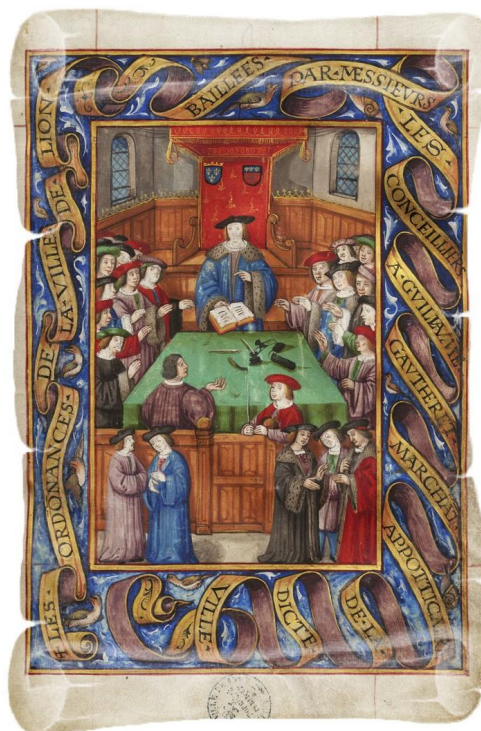 LES·
ORDONANCES·
DE·LA·VILLE·DE·
LION·
BAILLEES·
PAR·MESSIEVRS
LES·
CONCEILLIERS
A·GVILLAVME
GAVTHIER
MARCHAT
APPOITICA
DE·LA·
DICTE
VILLE·